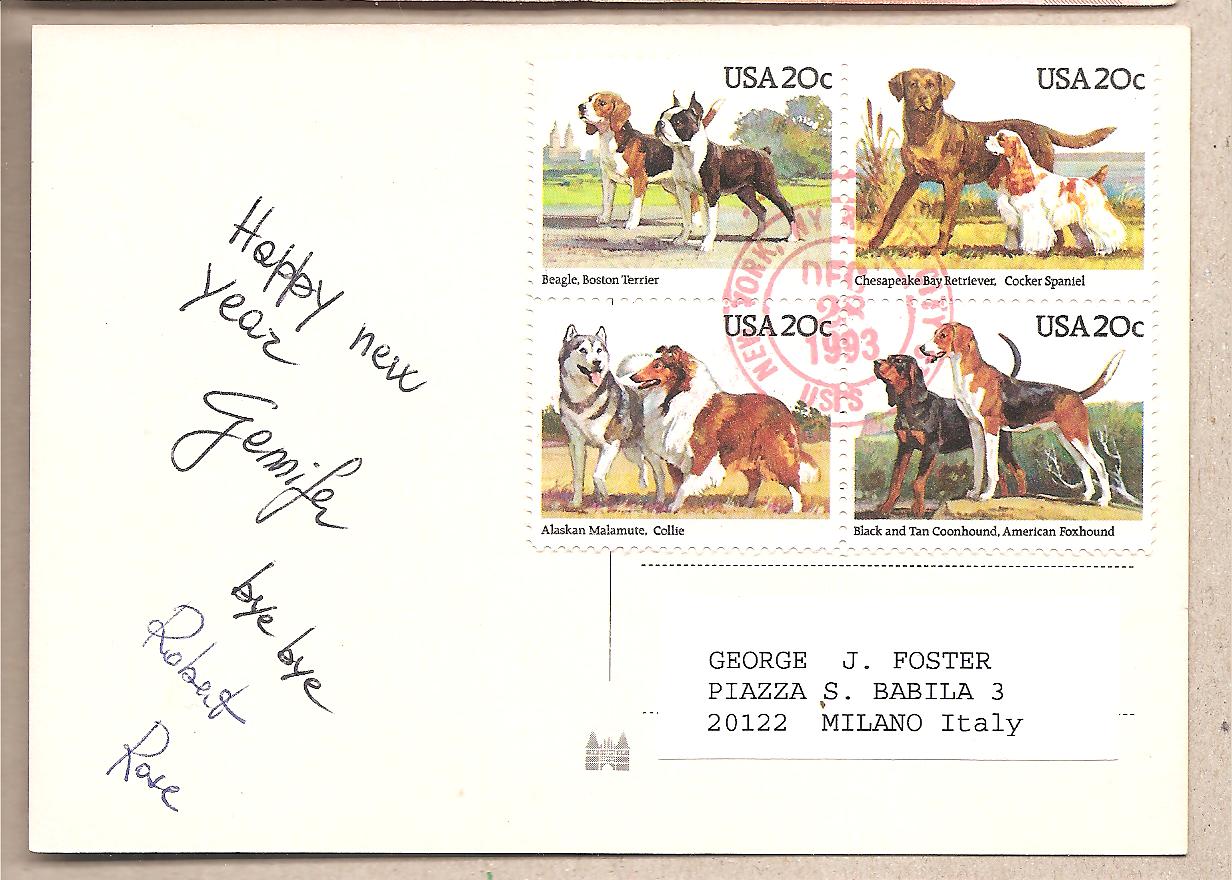 Happy new
year
Gennifer
bye bye
Robert
Rose
USA 20c
Beagle, Boston Terrier
USA 20c
Chesapeake Bay Retriever, Cocker Spaniel
USA 20c
Alaskan Malamute, Collie
USA 20c
Black and Tan Coonhound, American Foxhound
NEW YORK, NY
DEC
28
1993
USPS
GEORGE J. FOSTER
PIAZZA S. BABILA 3
20122 MILANO Italy